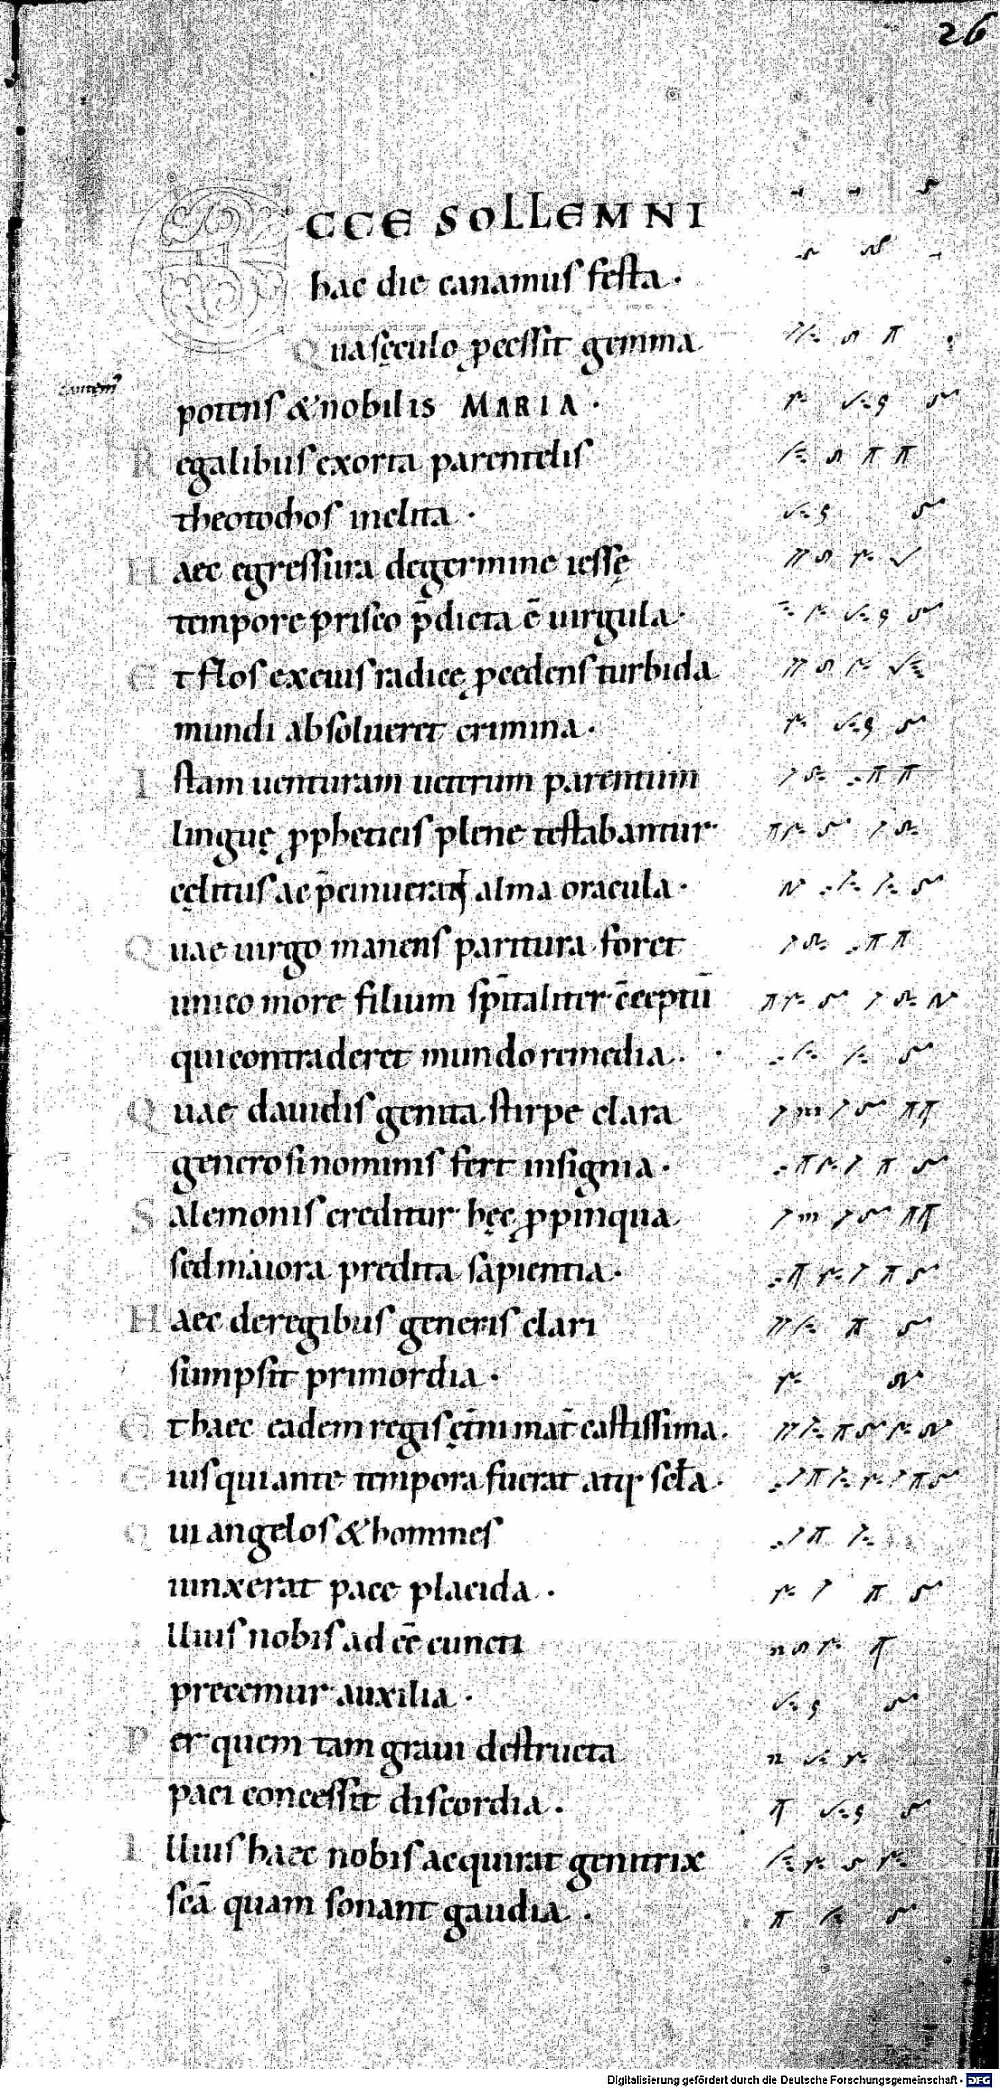 26
ECCE SOLLEMNI
hac die canamus festa ·
Qua sęculo ꝓcessit gemma
potens & nobilis MARIA ·
Regalibus exorta parentelis
theotochos inclita ·
Haec egressura de germine iessę
tempore prisco p̄dicta ē uirgula ·
Et flos ex eius radice ꝓcedens turbida
mundi absolueret crimina ·
Istam uenturam ueterum parentum
linguę ꝓpheticis plene testabantur
cęlitus ac p̄cinuerant alma oracula ·
Quae uirgo manens paritura foret
unico more filium sp̄italiter c̄ceptū
qui contraderet mundo remedia ·
Quae dauidis genita stirpe clara
generosi nominis fert insignia ·
Salemonis creditur hęc ꝓpinqua
sed maiora predita sapientia ·
Haec de regibus generis clari
sumpsit primordia ·
Et haec eadem regis ęt̄ni mat̄ castissima ·
Cuius qui ante tempora fuerat atq; scl̄a ·
Qui angelos & homines
iunxerat pace placida ·
Illius nobis adēē cuncti
precemur auxilia ·
Per quem tam graui destructa
paci concessit discordia ·
Illius haec nobis acquirat genitrix
scā quam sonant gaudia ·
Digitalisierung gefördert durch die Deutsche Forschungsgemeinschaft - DFG